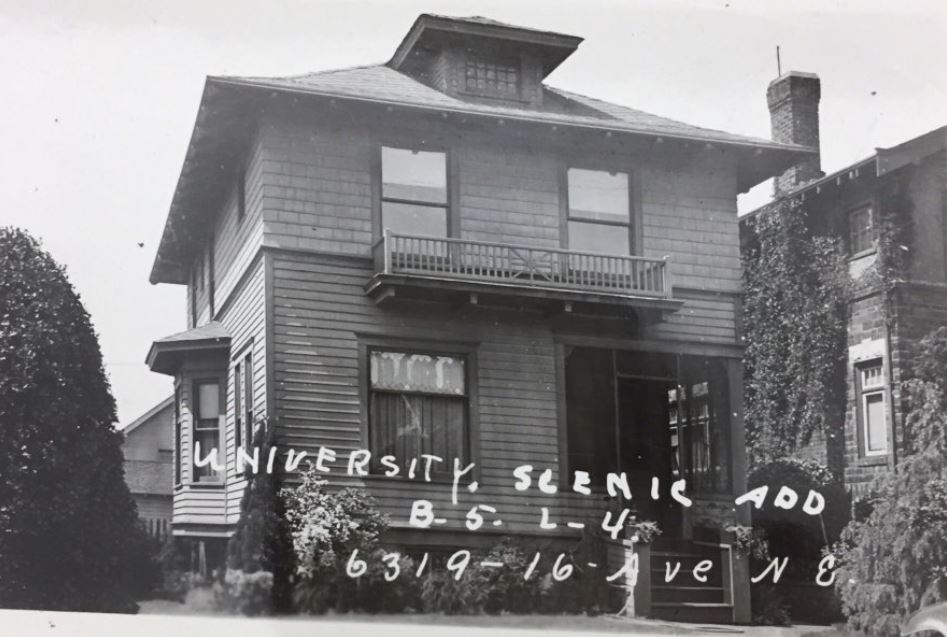 UNIVERSITY. SCENIC ADD
B-5- L-4.
6319-16-Ave N E.